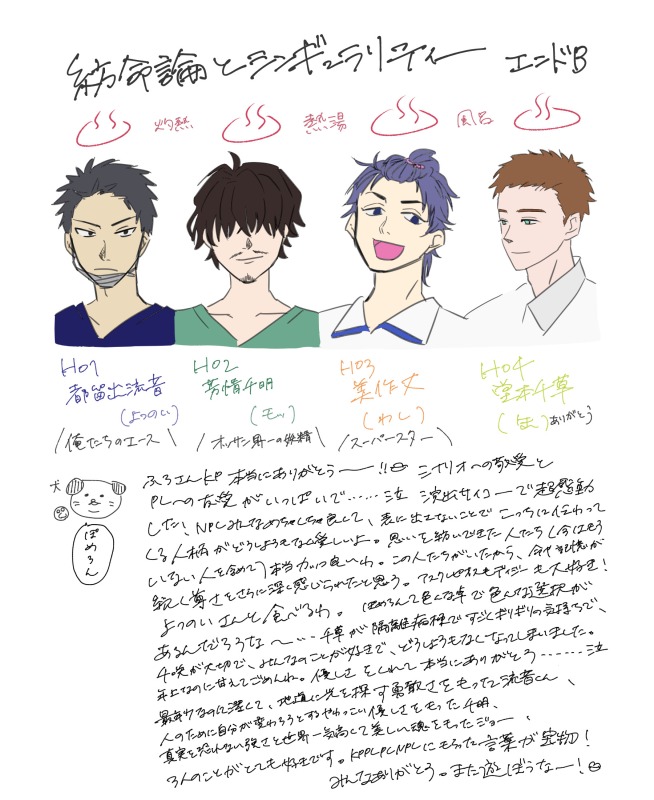 紡命論とシンギュラリティー エンドB
灼熱 熱湯 風呂
HO1 HO2 HO3 HO4
都留出流者 芳情千明 美作丈 堂本千草
(よつのい) (モッ) (わし) (缶)ありがとう
/俺たちのエース\ /オッサン界一の妖精\ /スーパースター\
犬
ぽめろん
ふろさんKP 本当にありがとうー!! シナリオへの敬愛と
PLへの友愛がいっぱいで……泣 演出サイコーで超感動
した! NPCみんなめちゃくちゃ良くて、表に出てないことでこっちに伝わって
くる人柄がどうしようもなく愛しいよ。思いを紡いできた人たち(今はもう
いない人を含めて)本当カッコ良いわ。この人たちがいたから、命や記憶が
続く尊さをさらに深く感じられたと思う。アスクレピオスもデイジーも大好き!
よつのいさんと食べるわ。ぽめろんて色んな卓で色んな選択が
あるんだろうな〜… 千草が隔離病棟ですごくギリギリの気持ちで、
千咲が大切で、みんなのことが好きで、どうしようもなくなってしまいました。
年上なのに甘えてごめんね。優しさをくれて本当にありがとう……泣
最年少なのに潔くて、地道に光を探す勇敢さをもった流者くん、
人のために自分が変わろうとするやわっこい優しさをもった千明、
真実を恐れない強さと世界一気高くて美しい魂をもったジョー、
3人のことがとても好きです。KPPLPCNPCにもらった言葉が宝物!
みんなありがとう。また遊ぼうなー!